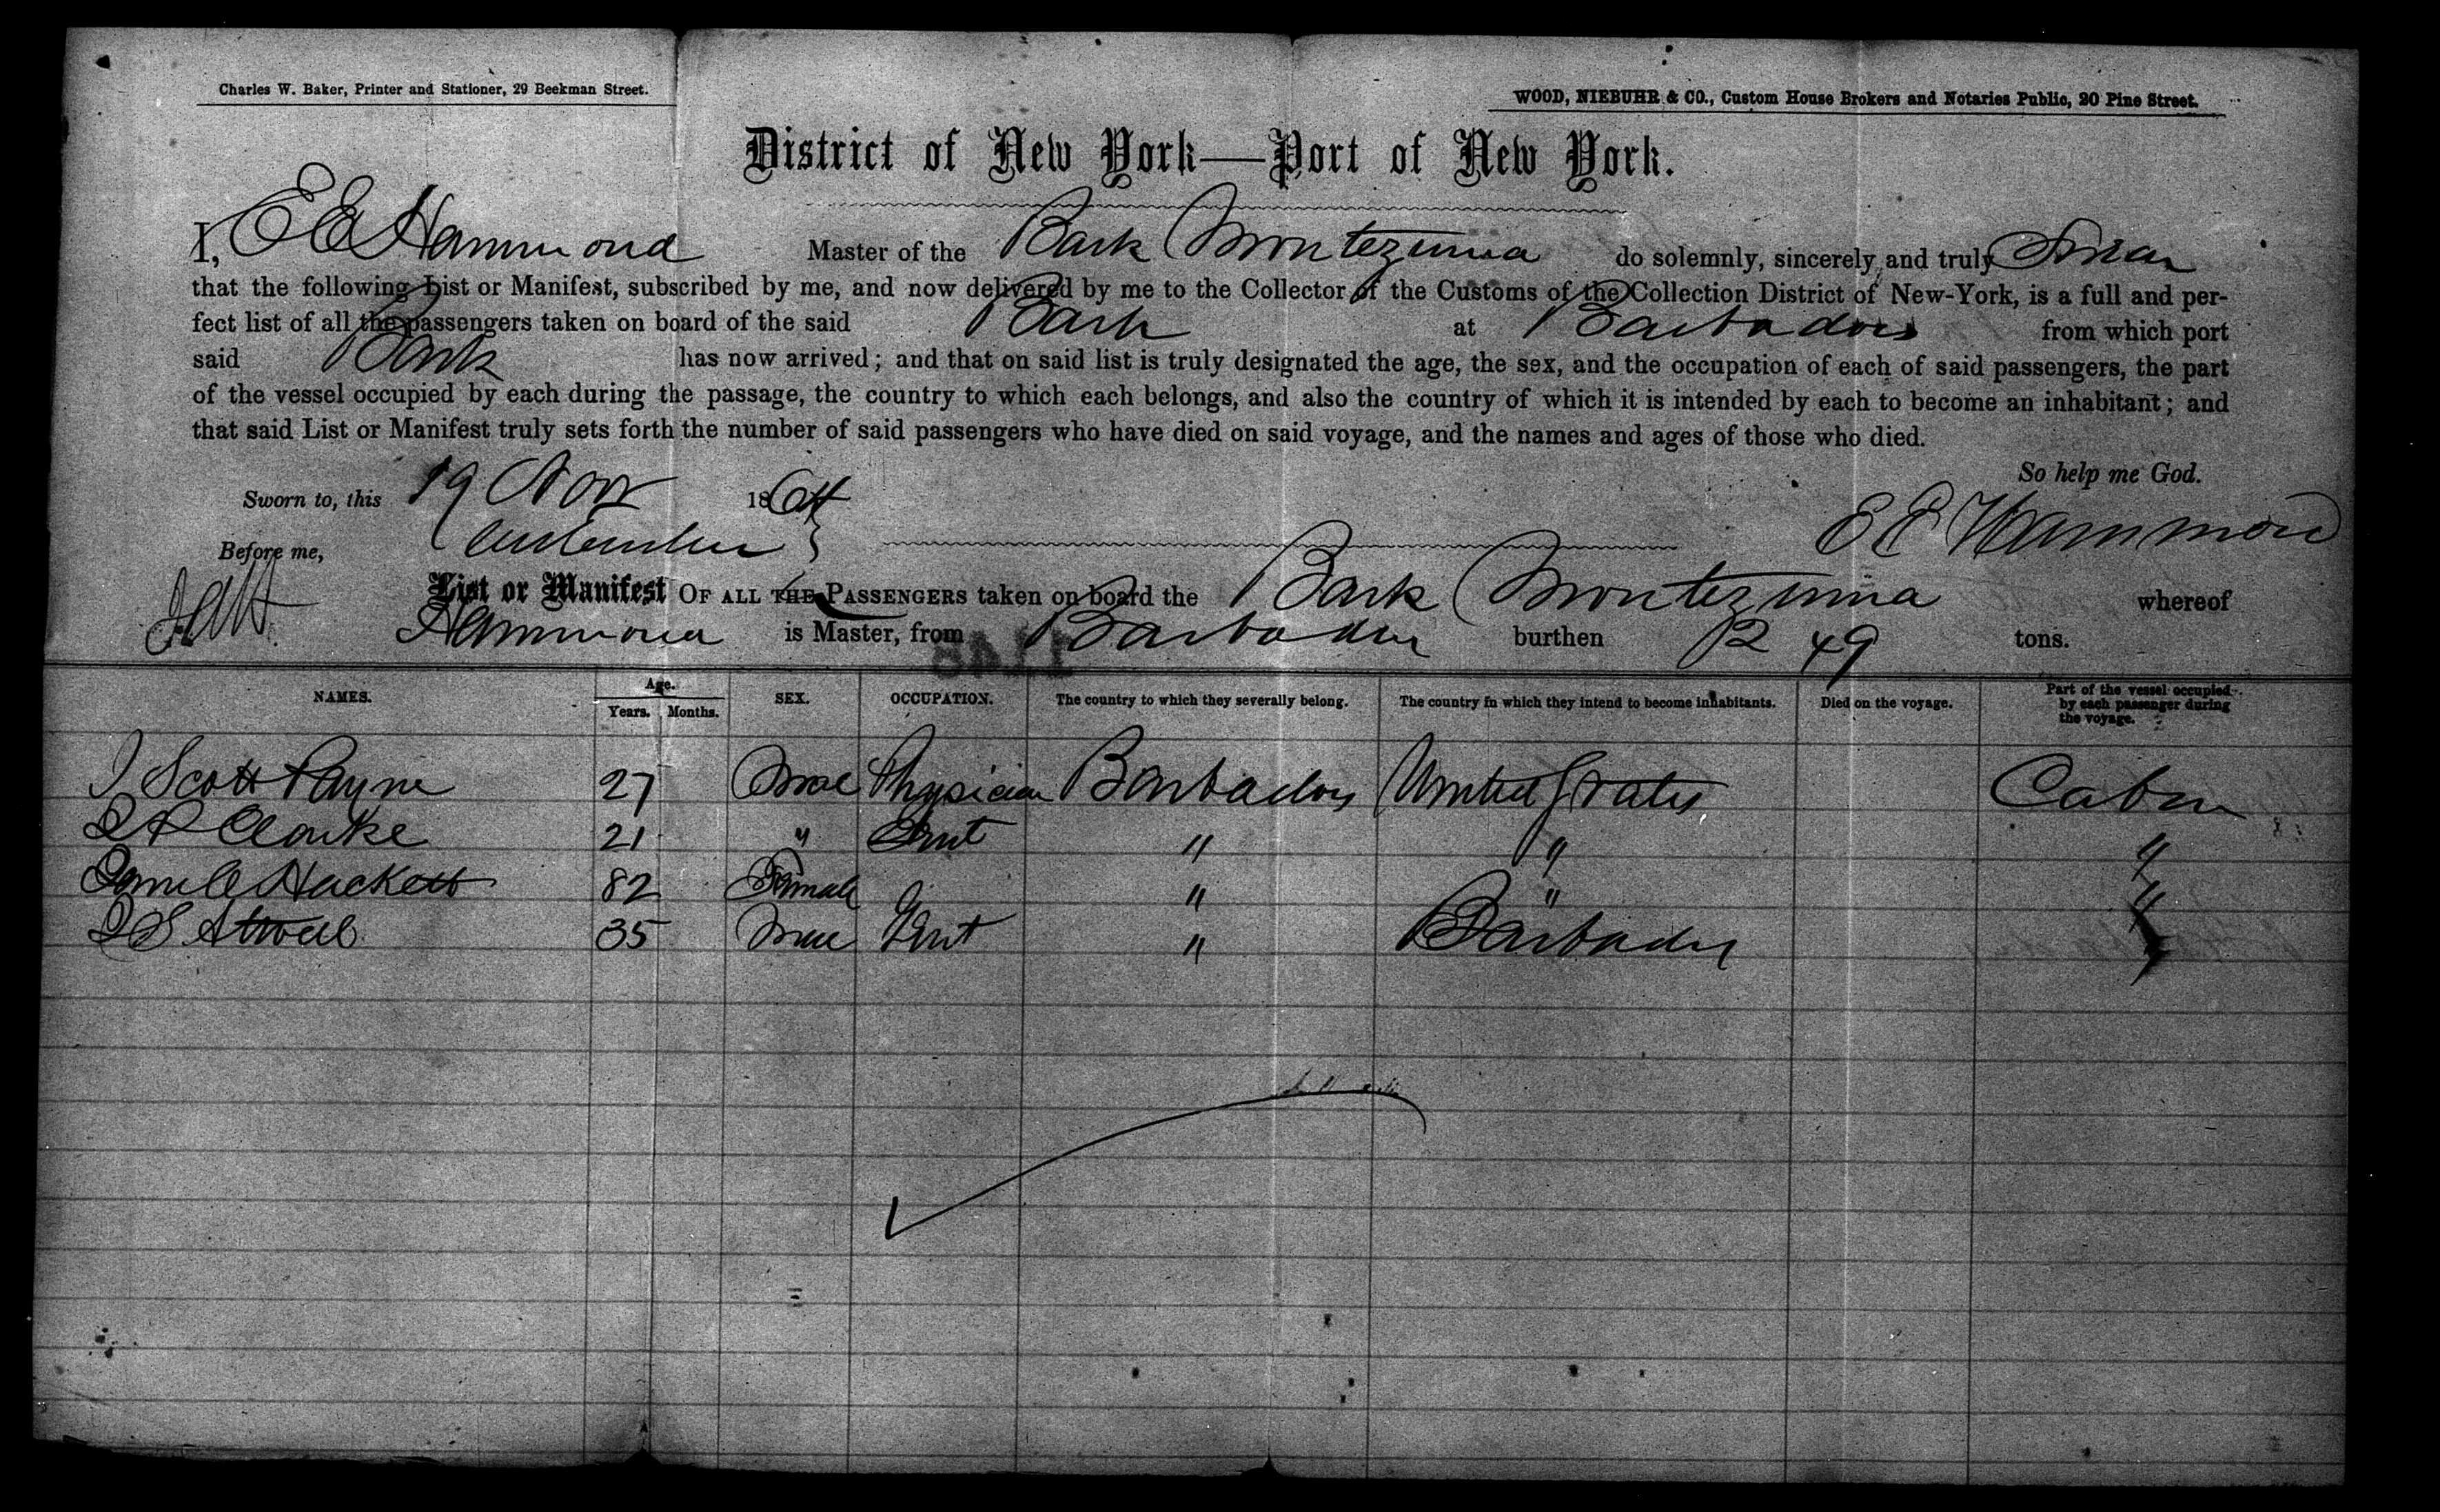 Charles W. Baker, Printer and Stationer, 29 Beekman Street.
WOOD, NIEBUHR & CO., Custom House Brokers and Notaries Public, 20 Pine Street.
District of New York—Port of New York.
I, E E Hammond Master of the Bark Montezuma do solemnly, sincerely, and truly Swear
that the following List or Manifest, subscribed by me, and now delivered by me to the Collector of the Customs of the Collection District of New-York, is a full and per-
fect list of all the passengers taken on board of the said Bark at Barbadoes from which port
said Bark has now arrived; and that on said list is truly designated the age, the sex, and the occupation of each of said passengers, the part
of the vessel occupied by each during the passage, the country to which each belongs, and also the country of which it is intended by each to become an inhabitant; and
that said List or Manifest truly sets forth the number of said passengers who have died on said voyage, and the names and ages of those who died.
So help me God.
Sworn to, this 19 Nov 186
E E Hammond
Before me,
List or Manifest OF ALL THE PASSENGERS taken on board the Bark Montezuma whereof
Hammond is Master, from Barbadoes burthen 249 tons.
NAMES. Age. Years. Months. SEX. OCCUPATION. The country to which they severally belong. The country in which they intend to become inhabitants. Died on the voyage. Part of the vessel occupied by each passenger during the voyage.
J Scott Payne 27 Male Physician Barbados United States Cabin
Clarke 21 " Gent " " "
Hackett 82 Female " " "
S Atwell 35 Male Gent " Barbados "